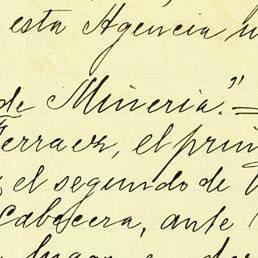 esta Agencia
de Mineria."=
Terraez, el prin
el segundo de
Cabecera, ante
lugar